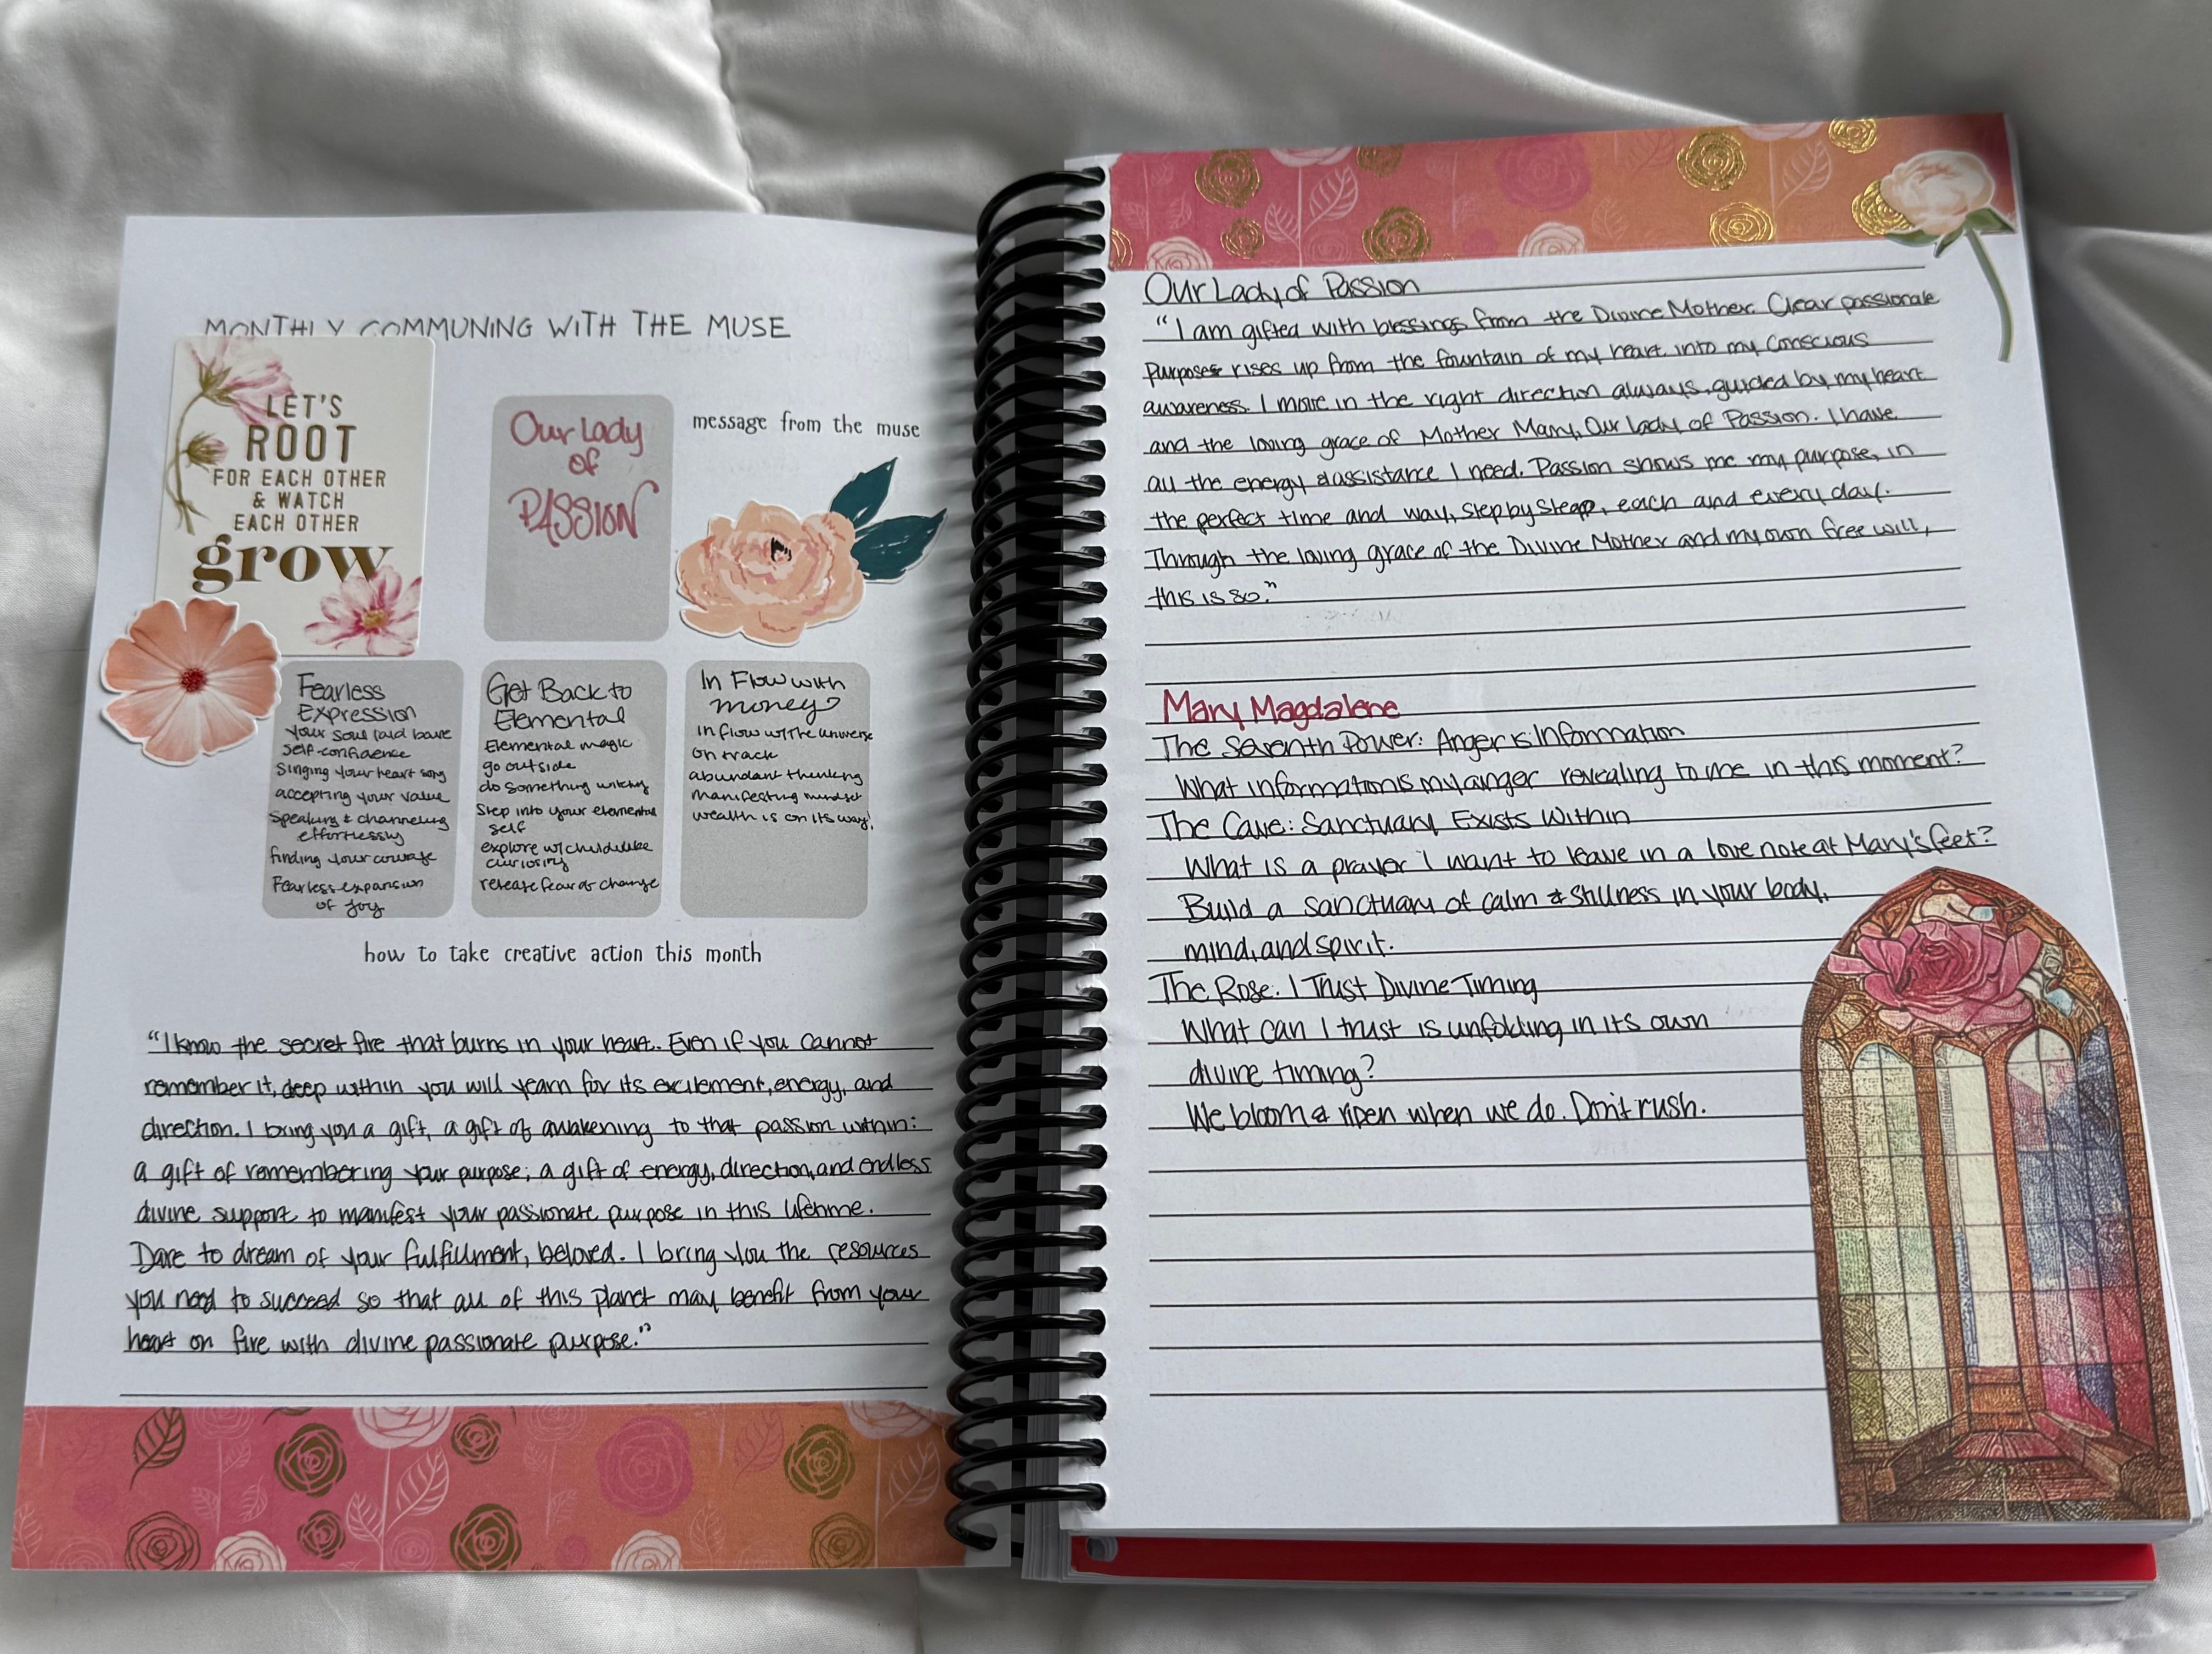 MONTHLY COMMUNING WITH THE MUSE
LET'S
ROOT
FOR EACH OTHER
& WATCH
EACH OTHER
grow
Our Lady
of
PASSION
message from the muse
Fearless
Expression
your soul laid bare
self-confidence
Singing your heart song
accepting your value
Speaking & channeling
effortlessly
finding your courage
Fearless expansion
of joy
Get Back to
Elemental
Elemental magic
go outside
do something witchy
Step into your elemental
self
explore w/childlike
curiosity
release fear of change
In Flow with
money
in flow w/the universe
on track
abundant thinking
manifesting mindset
wealth is on its way!
how to take creative action this month
"I know the secret fire that burns in your heart. Even if you cannot
remember it, deep within you will yearn for its excitement, energy, and
direction. I bring you a gift, a gift of awakening to that passion within:
a gift of remembering your purpose; a gift of energy, direction, and endless
divine support to manifest your passionate purpose in this lifetime.
Dare to dream of your fulfillment, beloved. I bring you the resources
you need to succeed so that all of this planet may benefit from your
heart on fire with divine passionate purpose."
Our Lady of Passion
"I am gifted with blessings from the Divine Mother. Clear passionate
purpose rises up from the fountain of my heart into my conscious
awareness. I move in the right direction always, guided by my heart
and the loving grace of Mother Mary, Our Lady of Passion. I have
all the energy & assistance I need. Passion shows me my purpose, in
the perfect time and way, step by step, each and every day.
Through the loving grace of the Divine Mother and my own free will,
this is so."
Mary Magdalene
The Seventh Power: Anger is Information
What information is my anger revealing to me in this moment?
The Cave: Sanctuary Exists Within
What is a prayer I want to leave in a love note at Mary's feet?
Build a sanctuary of calm & stillness in your body,
mind, and spirit.
The Rose: I Trust Divine Timing
What can I trust is unfolding in its own
divine timing?
We bloom & ripen when we do. Don't rush.